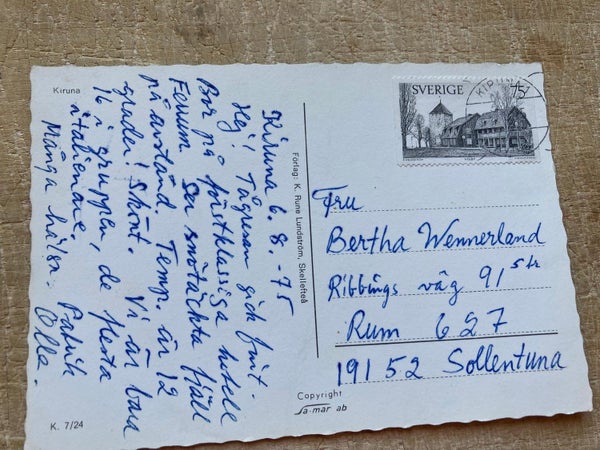 Kiruna
Kiruna 6.8.-75
Hej! Tågresan gick fint.
Bor på förstklassiga hotell
Ferrum. Ser snötäckta fjäll
på avstånd. Temp. är 12
grader! Skönt. Vi är bara
16 i gruppen, de flesta
italienare.
Många hälsn. Patrik
Olla.
K. 7/24
Förlag: K. Rune Lundström, Skellefteå
Copyright
sa-mar ab
SVERIGE 75
KIRUNA
Fru
Bertha Wennerland
Ribbings väg 91 5 tr
Rum 627
191 52 Sollentuna